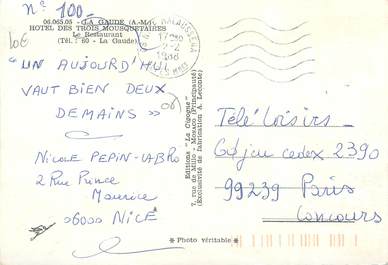 n° 100-
10€
06.065.05 - LA GAUDE (A.-M.)
HOTEL DES TROIS MOUSQUETAIRES
Le Restaurant
(Tél. : 60 - La Gaude)
17H30
-2
1988
"UN AUJOURD'HUI
VAUT BIEN DEUX
DEMAINS »
(06)
NICOLE PEPIN-LABRO
2 Rue Prince
Maurice
06000 NICE
Editions "La Cigogne"
7, rue de Millo - Monaco (Principauté)
(Exclusivité de fabrication A. Leconte)
Télé Loisirs -
Cdjeu cedex 2390
99239 Paris
Concours
★ Photo véritable ★